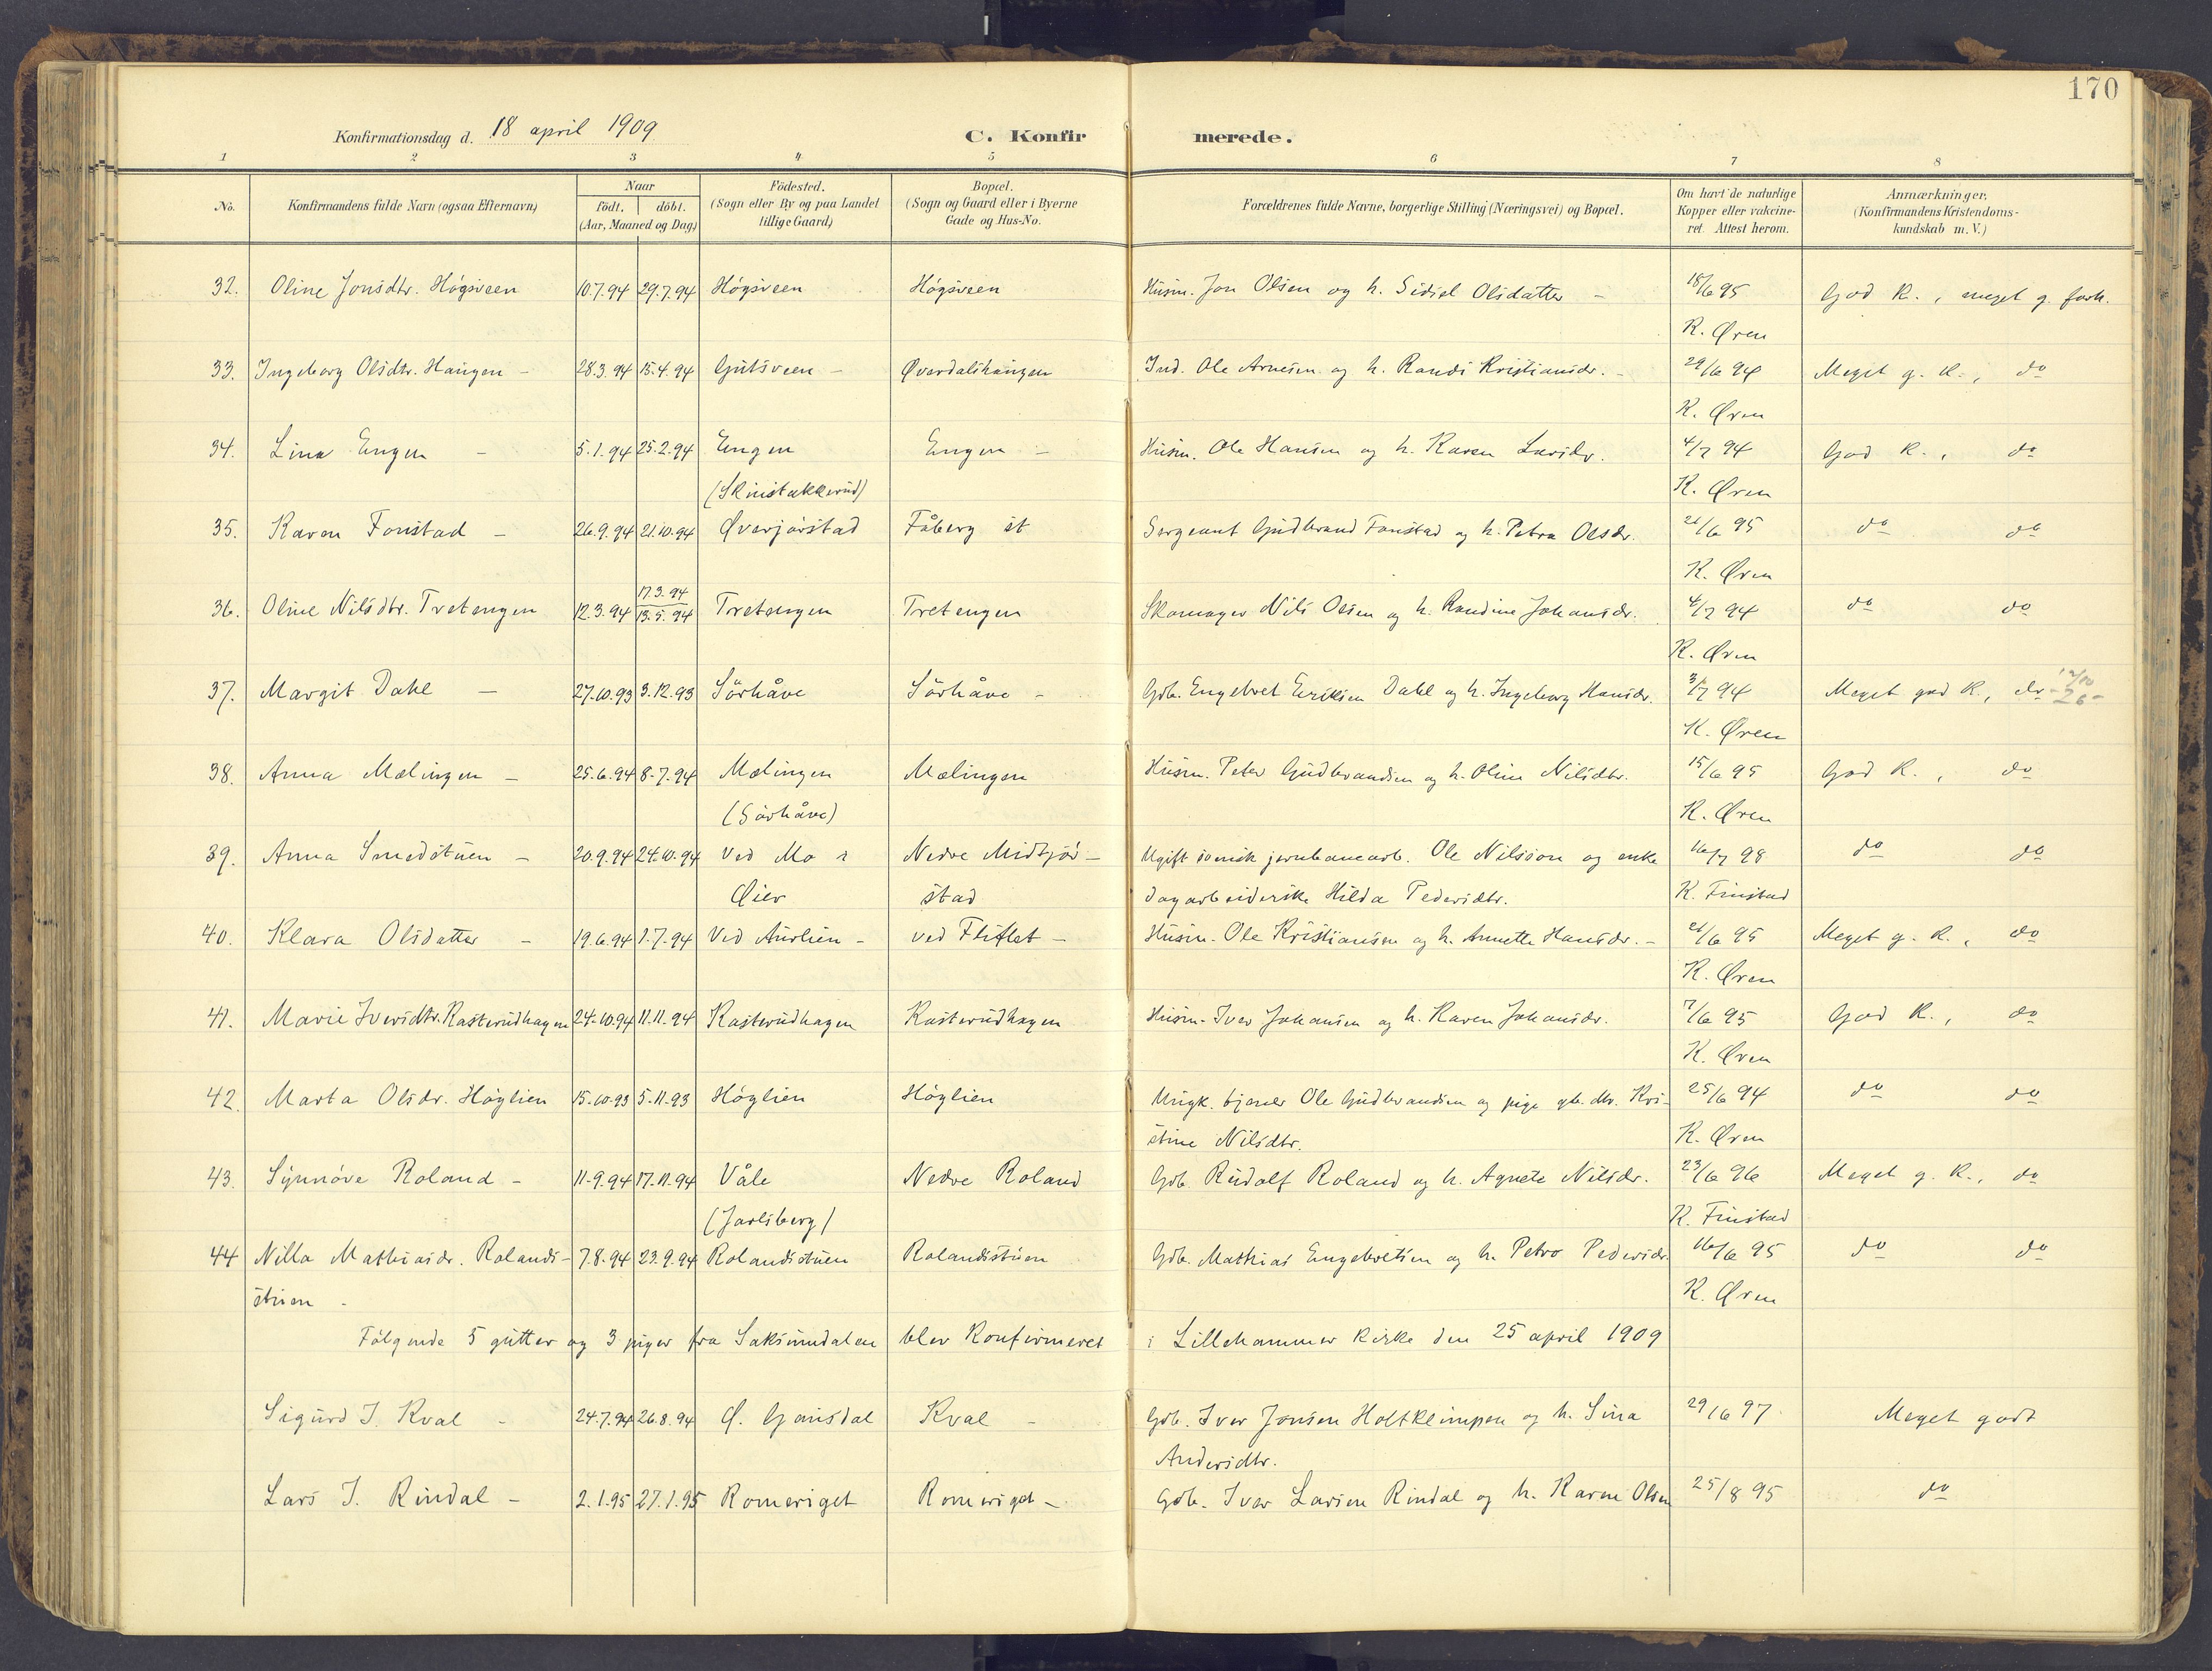 170
Konfirmationsdag d. 18 april 1909
C. Konfirmerede.
1 2 3 4 5 6 7 8
No. Konfirmandens fulde Navn (ogsaa Efternavn) Naar födt. döbt. (Aar, Maaned og Dag) Födested. (Sogn eller By og paa Landet tillige Gaard) Bopæl. (Sogn og Gaard eller i Byerne Gade og Hus-No. Forældrenes fulde Navne, borgerlige Stilling (Næringsvei) og Bopæl. Om havt de naturlige Kopper eller vakcineret. Attest herom. Anmærkninger. (Konfirmandens Kristendomskundskab m. V.)
32. Oline Jonsdtr. Högsveen 10.7.94 29.7.94 Högsveen Högsveen Husm. Jon Olsen og h. Sidsel Olsdatter - 18/6 95 God K., meget g. forh.
K. Øren
33. Ingeborg Olsdtr. Haugen - 28.3.94 15.4.94 Gutsveen - Øverdalshaugen Ind. Ole Arnesen og h. Randi Kristiansdr. - 29/6 94 Meget g. K., do
K. Øren
34. Lina Engen - 5.1.94 25.2.94 Engen Engen - Husm. Ole Hansen og h. Karen Larsdr. 4/7 94 God K., do
(Skinstakkerud) K. Øren
35. Karen Fonstad - 26.9.94 21.10.94 Øverjörstad Fåberg st Sergeant Gudbrand Fonstad og h. Petra Olsdr. 26/6 95 do do
K. Øren
17.3.94
36. Oline Nilsdtr. Tretengen 12.3.94 13.5.94 Tretengen Tretengen Skomager Nils Olsen og h. Randine Johansdr. 4/7 94 do do
K. Øren
37. Margit Dahl - 27.10.93 3.12.93 Sörhåve Sörhåve - Gdb. Engebret Eriksen Dahl og h. Ingeborg Hansdr. 3/7 94 Meget god K., do 12/10 26-
K. Øren
38. Anna Mælingen - 25.6.94 8.7.94 Mælingen Mælingen Husm. Peter Gudbrandsen og h. Oline Nilsdtr. 15/6 95 God K., do
(Sörhåve) K. Øren
39. Anna Smedstuen - 20.9.94 24.10.94 Ved Mo i Nedre Midtjör- Ugift svensk jernbanearb. Ole Nilsson og enke 16/7 98 do do
Öier stad dagarbeiderske Hilda Pedersdtr. K. Finstad
40. Klara Olsdatter - 19.6.94 1.7.94 Ved Aurlien - ved Fliflet - Husm. Ole Kristiansen og h. Annette Hansdr. - 21/6 95 Meget g. K., do
K. Øren
41. Marie Iversdtr. Kasterudhagen 24.10.94 11.11.94 Kasterudhagen Kasterudhagen Husm. Iver Johansen og h. Karen Johansdr. 7/6 95 God K., do
K. Øren
42. Marta Olsdr. Höglien 15.10.93 5.11.93 Höglien Höglien Ungk. tjener Ole Gudbrandsen og pige gb. dtr. Kri- 25/6 94 do do
stine Nilsdtr. K. Øren
43. Synnöve Roland - 11.9.94 17.11.94 Våle Nedre Roland Gdb. Rudolf Roland og h. Agnete Nilsdr. 23/6 96 Meget g. K., do
(Jarlsberg) K. Finstad
44 Nilla Mathiasdr. Rolands- 7.8.94 23.9.94 Rolandsstuen Rolandsstuen Gdb. Mathias Engebretsen og h. Petro Pedersdr. 16/6 95 do do
stuen - K. Øren
Følgende 5 gutter og 3 piger fra Saksumdalen blev Konfirmeret i Lillehammer kirke den 25 april 1909
Sigurd I. Kval - 24.7.94 26.8.94 Ø. Gausdal Kval - Gdb. Iver Jonsen Holtklimpen og h. Sina 29/6 97. Meget godt
Andersdtr.
Lars I. Rindal - 2.1.95 27.1.95 Romeriget Romeriget - Gdb. Iver Larsen Rindal og h. Karen Olsen 25/8 95 do